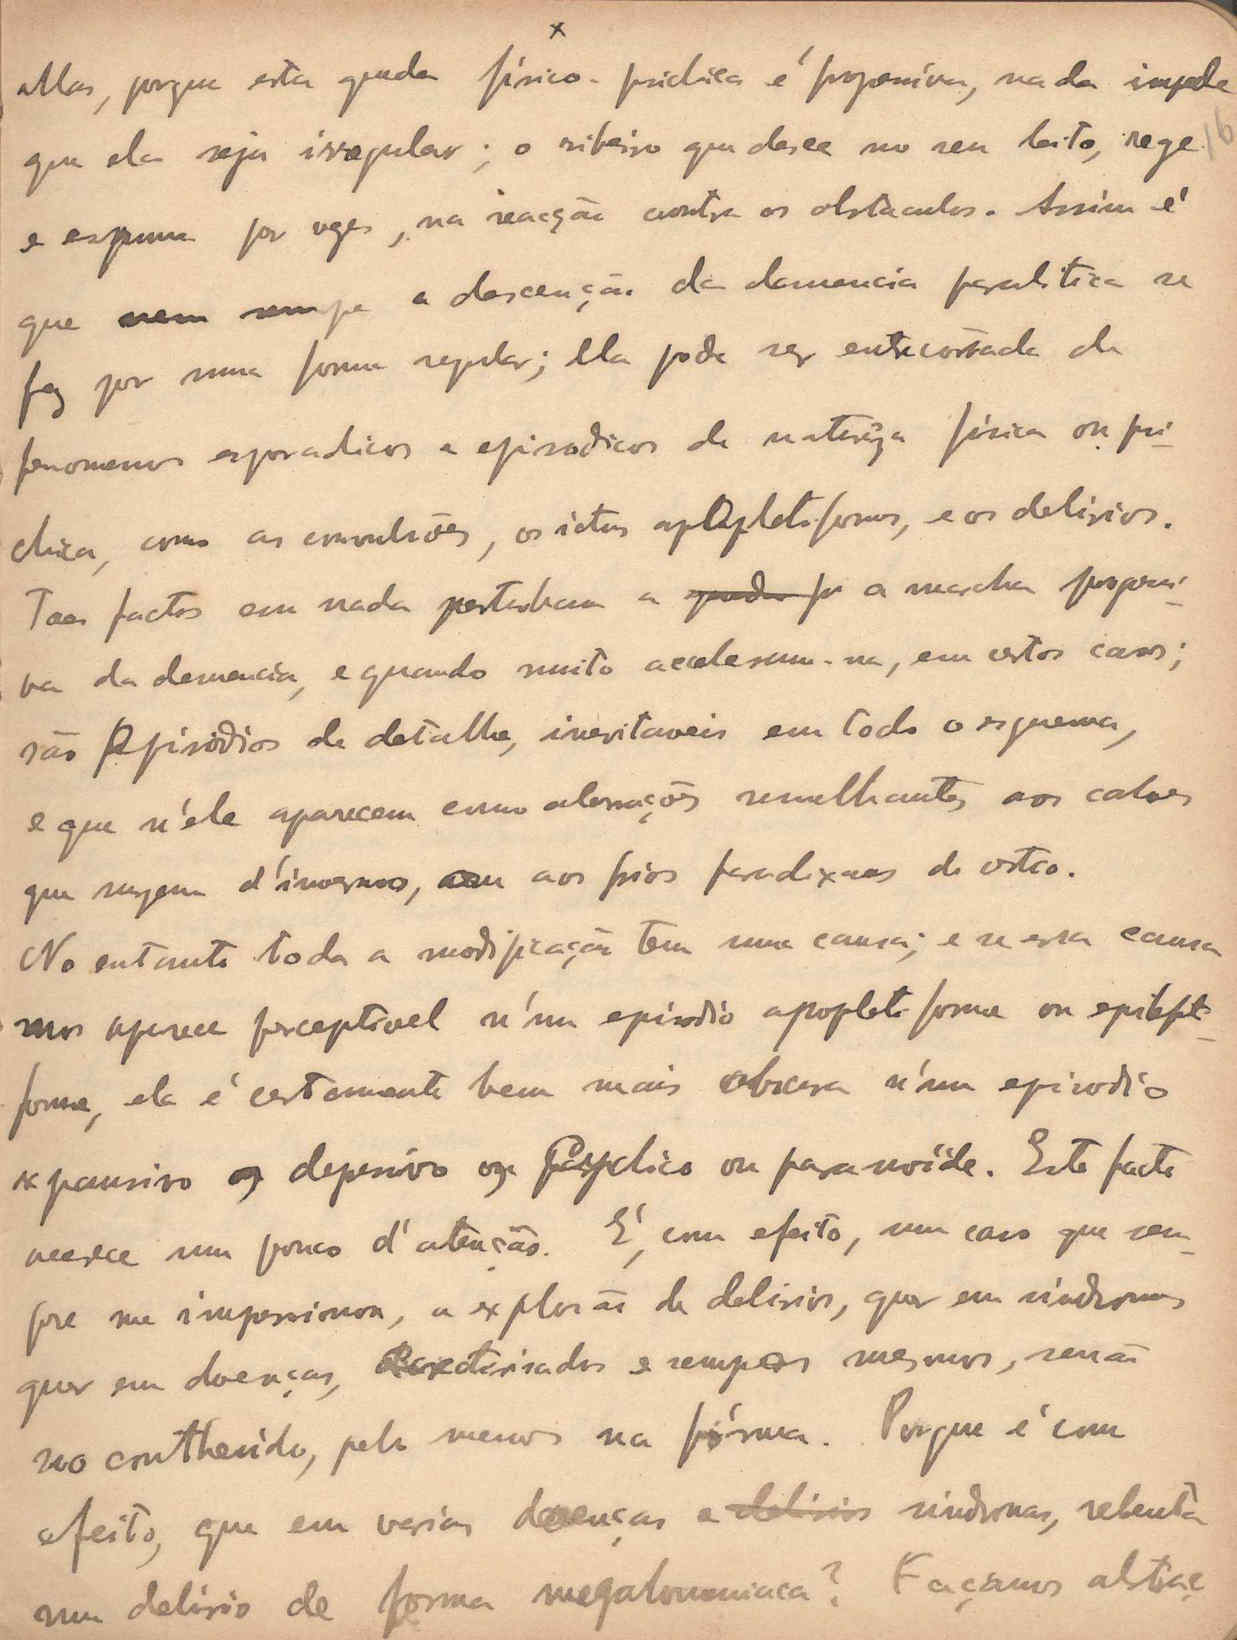 x
Mas, porque esta queda físico-psichica é progressiva, nada impede
16
que ela seja irregular; o ribeiro que desce no seu leito, ruge
e espuma por vezes, na reacção contra os obstaculos. Assim é
que nem sempre a descenção da demencia paralitica se
fez por uma forma regular; ela pode ser entrecortada de
fenomenos esporadicos e episodicos de natureza física ou psi-
chica, como as convulsões, os ictus apopletiformes, e os delirios.
Taes factos em nada perturbam a queda pr a marcha progressi-
va da demencia, e quando muito aceleram-na, em certos casos;
são episodios de detalhe, inevitaveis em todo o esquema,
e que n'ele aparecem como aberrações semelhantes aos calores
que surgem d'inverno, ou aos frios paradoxaes do estio.
No entanto toda a modificação tem uma causa; e se essa causa
nos aparece perceptivel n'um episodio apopletiforme ou epilepti-
forme, ela é certamente bem mais obscura n'um episodio
expansivo ou depressivo ou psychico ou paranoíde. Este facto
merece um pouco d'atenção. É, com efeito, um caso que sem-
pre me impressionou, a explosão de delirios, quer em sindromas
quer em doenças, caracterisados e sempre os mesmos, senão
no contheúdo, pelo menos na fórma. Porque é com
efeito, que em varias doenças e delirios sindromas, rebenta
um delirio de forma megalomaniaca? Façamos abstraç